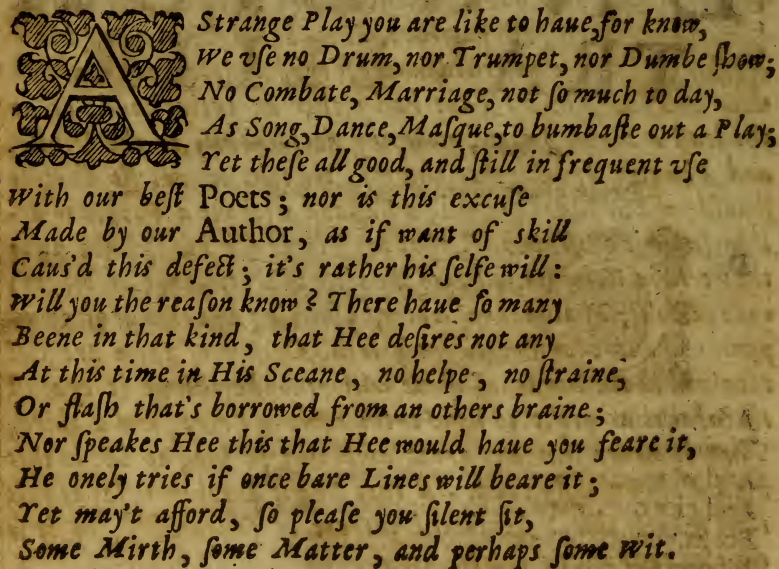 A Strange Play you are like to haue, for know,
We vſe no Drum, nor Trumpet, nor Dumbe ſhow;
No Combate, Marriage, not ſo much to day,
As Song, Dance, Maſque, to bumbaſte out a Play;
Yet theſe all good, and ſtill in frequent vſe
With our beſt Poets; nor is this excuſe
Made by our Author, as if want of skill
Caus'd this defect; it's rather his ſelfe will:
Will you the reaſon know? There haue ſo many
Beene in that kind, that Hee deſires not any
At this time in His Sceane, no helpe, no ſtraine,
Or flaſh that's borrowed from an others braine;
Nor ſpeakes Hee this that Hee would haue you feare it,
He onely tries if once bare Lines will beare it;
Yet may't afford, ſo pleaſe you ſilent ſit,
Some Mirth, ſome Matter, and perhaps ſome Wit.